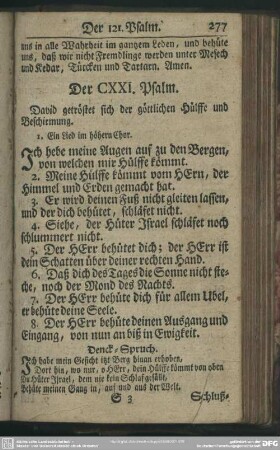 Der 121. Psalm. 277
uns in alle Wahrheit im gantzem Leben, und behüte
uns, daß wir nicht Fremdlinge werden unter Mesech
und Kedar, Türcken und Tartarn. Amen.
Der CXXI. Psalm.
David getröstet sich der göttlichen Hülffe und
Beschirmung.
1. Ein Lied im höhern Chor.
Ich hebe meine Augen auf zu den Bergen,
von welchen mir Hülffe kömmt.
2. Meine Hülffe kömmt vom HErn, der
Himmel und Erden gemacht hat.
3. Er wird deinen Fuß nicht gleiten lassen,
und der dich behütet, schläfet nicht.
4. Siehe, der Hüter Israel schläfet noch
schlummert nicht.
5. Der HErr behütet dich; der HErr ist
dein Schatten über deiner rechten Hand.
6. Daß dich des Tages die Sonne nicht ste-
che, noch der Mond des Nachts.
7. Der HErr behüte dich für allem Ubel,
er behüte deine Seele.
8. Der HErr behüte deinen Ausgang und
Eingang, von nun an biß in Ewigkeit.
Denck-Spruch.
Ich habe mein Gesicht itzt Berg hinan erhoben,
Dort hin, wo nur, o HErr, dein Hülffe kömmt von oben
Du Hüter Israel, dem nie kein Schlaf gefällt,
behüte meinen Gang in, auf und aus der Welt.
S 3 Schluß-